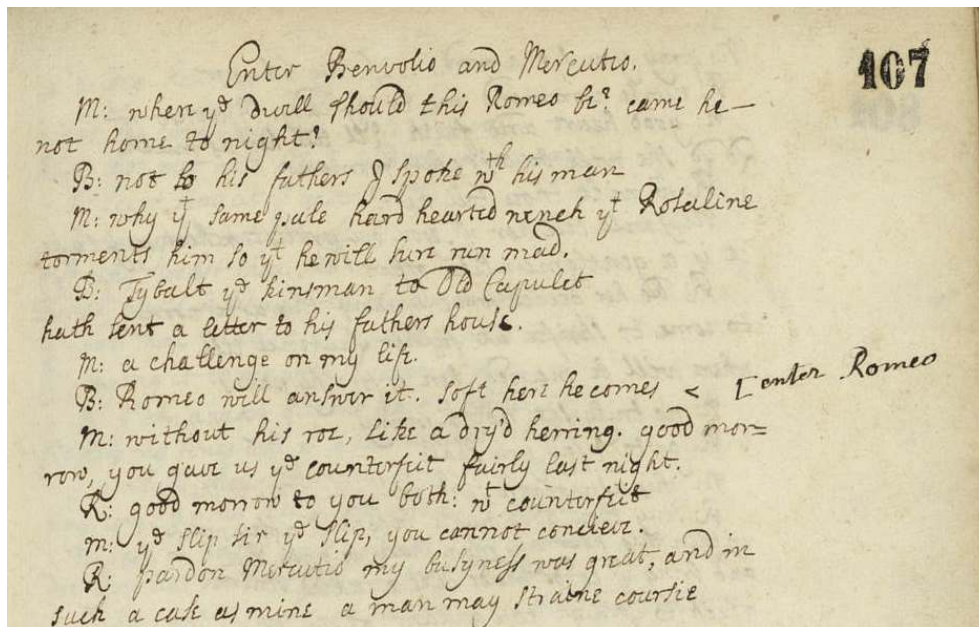 107
Enter Benvolio and Mercutio.
M: where yᵉ divill should this Romeo be? came he—
not home to night?
B: not to his fathers I spoke wᵗʰ his man
M: why yᵗ same pale hard hearted wench yᵗ Rosaline
torments him so yᵗ he will sure run mad.
B: Tybalt yᵉ kinsman to Old Capulet
hath sent a letter to his fathers house.
M: a challenge on my life.
B: Romeo will answer it. soft here he comes < [enter Romeo
M: without his roe, like a dry'd herring. good mor=
row, you gave us yᵉ counterfeit fairly last night.
R: good morrow to you both: wᵗ counterfeit
m: yᵉ slip sir yᵉ slip, you cannot concieve.
R: pardon Mercutio my busyness was great, and in
such a case as mine a man may straine coursie